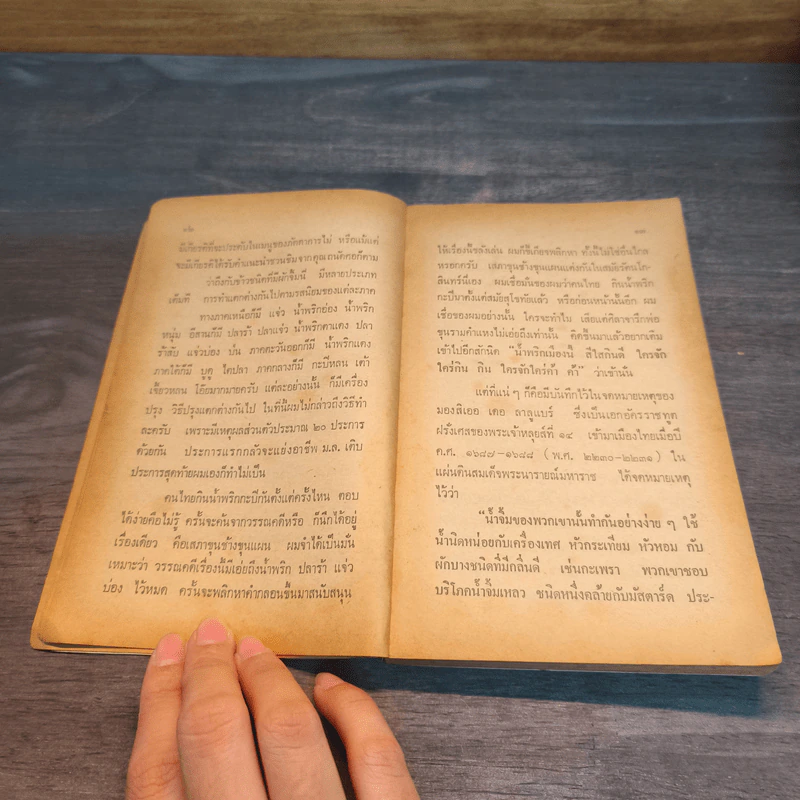 ๑๒
มีเกียรติที่จะประดับในเมนูของภัตตาคารไม่ หรือแม้แต่
จะมีเกียรติได้รับคำแนะนำชวนชิมจากคุณถนัดศอก็ตาม
ว่าถึงกับข้าวชนิดที่มีผักจิ้มนี้ มีหลายประเภท
เต็มที การทำแตกต่างกันไปตามรสนิยมของแต่ละภาค
ทางภาคเหนือก็มี แจ่ว น้ำพริกอ่อง น้ำพริก
หนุ่ม อีสานก็มี ปลาร้า ปลาแจ่ว น้ำพริกตาแดง ปลา
ร้าสับ แจ่วบอง บ่น ภาคตะวันออกก็มี น้ำพริกแกง
ภาคใต้ก็มี บูดู ไตปลา ภาคกลางก็มี กะปิหลน เต้า
เจี้ยวหลน โอ๊ยมากมายครับ แต่ละอย่างนั้น ก็มีเครื่อง
ปรุง วิธีปรุงแตกต่างกันไป ในที่นี้ผมไม่กล่าวถึงวิธีทำ
ละครับ เพราะมีเหตุผลส่วนตัวประมาณ ๒๐ ประการ
ด้วยกัน ประการแรกกลัวจะแย่งอาชีพ ม.ล. เติบ
ประการสุดท้ายผมเองก็ทำไม่เป็น
คนไทยกินน้ำพริกกะปิกันตั้งแต่ครั้งไหน ตอบ
ได้ง่ายคือไม่รู้ ครั้นจะค้นจากวรรณคดีหรือ ก็นึกได้อยู่
เรื่องเดียว คือเสภาขุนช้างขุนแผน ผมจำได้เป็นมั่น
เหมาะว่า วรรณคดีเรื่องนี้มีเอ่ยถึงน้ำพริก ปลาร้า แจ่ว
บ่อง ไว้หมด ครั้นจะพลิกหาคำกลอนขึ้นมาสนับสนุน
๑๓
ได้เรื่องนี้ขลังเล่น ผมก็ขี้เกียจพลิกหา ทั้งนี้ไม่ใช่อื่นไกล
หรอกครับ เสภาขุนช้างขุนแผนแต่งกันในสมัยรัตนโก-
สินทร์นี่เอง ผมเชื่อมั่นของผมว่าคนไทย กินน้ำพริก
กะปิมาตั้งแต่สมัยสุโขทัยแล้ว หรือก่อนหน้านั้นอีก ผม
เชื่อของผมอย่างนั้น ใครจะทำไม เสียแต่ศิลาจารึกพ่อ
ขุนรามคำแหงไม่เอ่ยถึงเท่านั้น คิดขึ้นมาแล้วอยากเติม
เข้าไปอีกสักนิด "น้ำพริกเมืองนี้ สิใสกินดี ใครจัก
ใคร่กิน กิน ใครจักใคร่ค้า ค้า" ว่าเข้านั่น
แต่ที่แน่ ๆ ก็คือมีบันทึกไว้ในจดหมายเหตุของ
มองสิเออ เดอ ลาลูแบร์ ซึ่งเป็นเอกอัครราชทูต
ฝรั่งเศสของพระเจ้าหลุยส์ที่ ๑๔ เข้ามาเมืองไทยเมื่อปี
ค.ศ. ๑๖๘๗-๑๖๘๘ (พ.ศ. ๒๒๓๐-๒๒๓๑) ใน
แผ่นดินสมเด็จพระนารายณ์มหาราช ได้จดหมายเหตุ
ไว้ว่า
"น้ำจิ้มของพวกเขานั้นทำกันอย่างง่าย ๆ ใช้
น้ำนิดหน่อยกับเครื่องเทศ หัวกระเทียม หัวหอม กับ
ผักบางชนิดที่มีกลิ่นดี เช่นกะเพรา พวกเขาชอบ
บริโภคน้ำจิ้มเหลว ชนิดหนึ่งคล้ายกับมัสตาร์ด ประ-